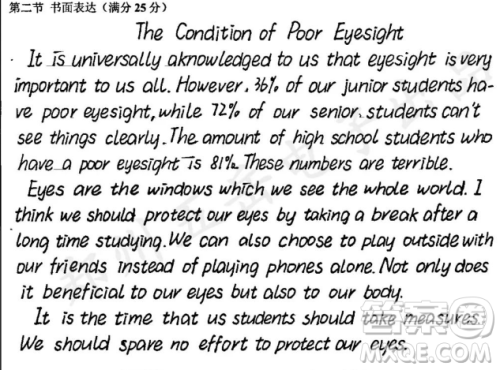 第二节 书面表达（满分25分）
The Condition of Poor Eyesight
It is universally aknowledged to us that eyesight is very
important to us all. However, 36% of our junior students ha-
ve poor eyesight, while 72% of our senior students can't
see things clearly. The amount of high school students who
have a poor eyesight is 81%. These numbers are terrible.
Eyes are the windows which we see the whole world. I
think we should protect our eyes by taking a break after a
long time studying. We can also choose to play outside with
our friends instead of playing phones alone. Not only does
it beneficial to our eyes but also to our body.
It is the time that us students should take measures.
We should spare no effort to protect our eyes.